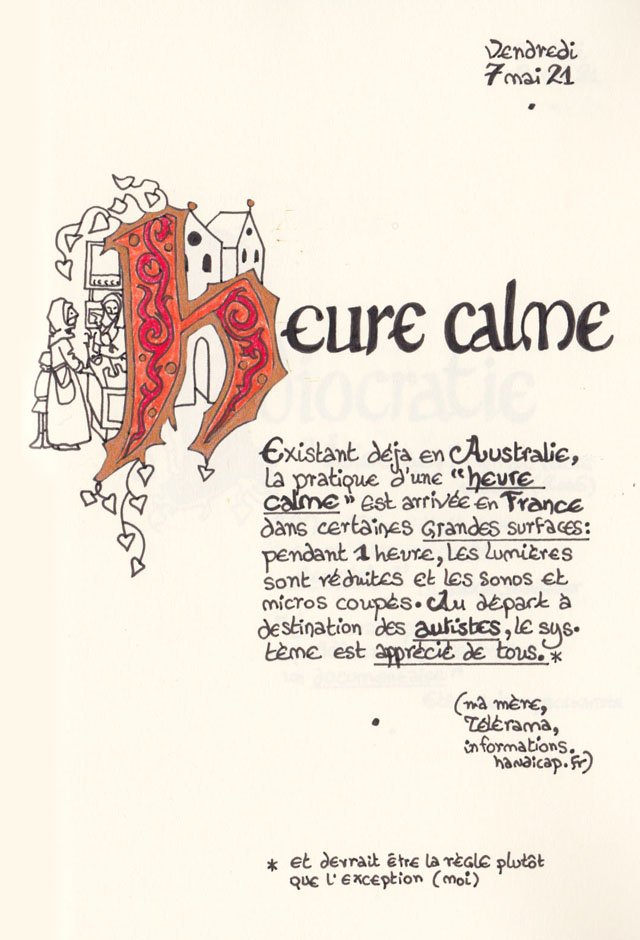 Vendredi
7 mai 21
heure calme
Existant déja en Australie,
la pratique d'une "heure
calme" est arrivée en France
dans certaines grandes surfaces:
pendant 1 heure, les lumières
sont réduites et les sonos et
micros coupés. Au départ à
destination des autistes, le sys-
tème est apprécié de tous.*
(ma mère,
Télérama,
informations.
handicap.fr)
* et devrait être la règle plutôt
que l'exception (moi)